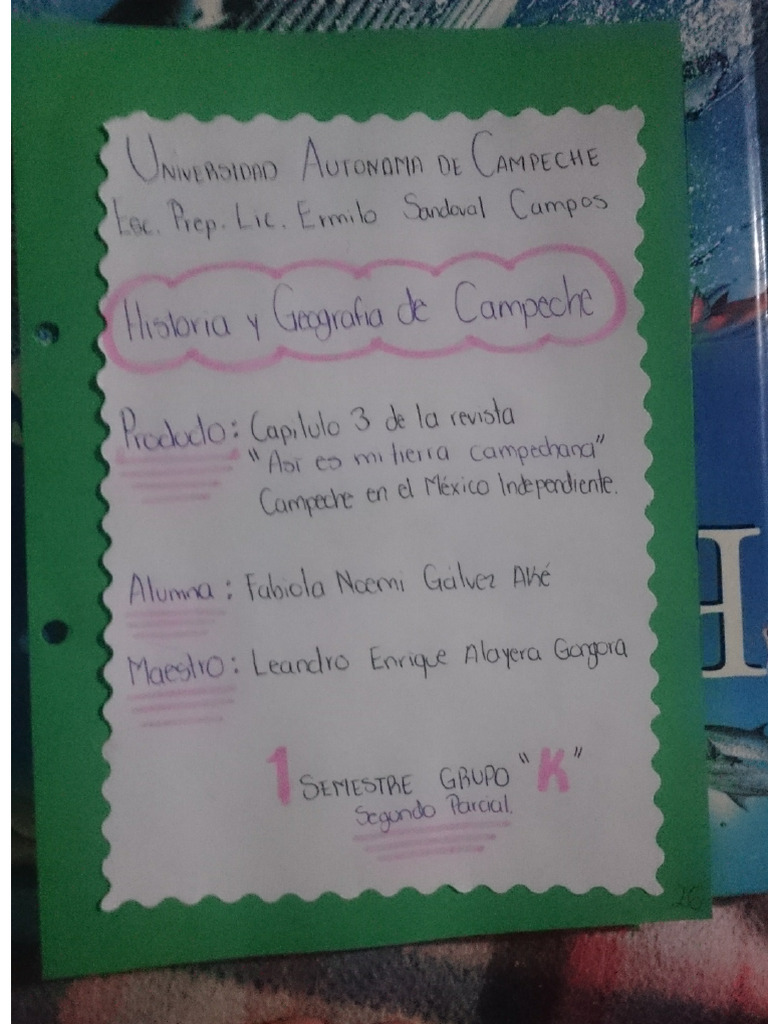 UNIVERSIDAD AUTONOMA DE CAMPECHE
Esc. Prep. Lic. Ermilo Sandoval Campos
Historia y Geografia de Campeche
Producto: Capitulo 3 de la revista
"Así es mi tierra campechana"
Campeche en el México Independiente.
Alumna: Fabiola Noemi Gálvez Aké
Maestro: Leandro Enrique Alayera Gongora
1 SEMESTRE GRUPO "K"
Segundo Parcial.
26
H